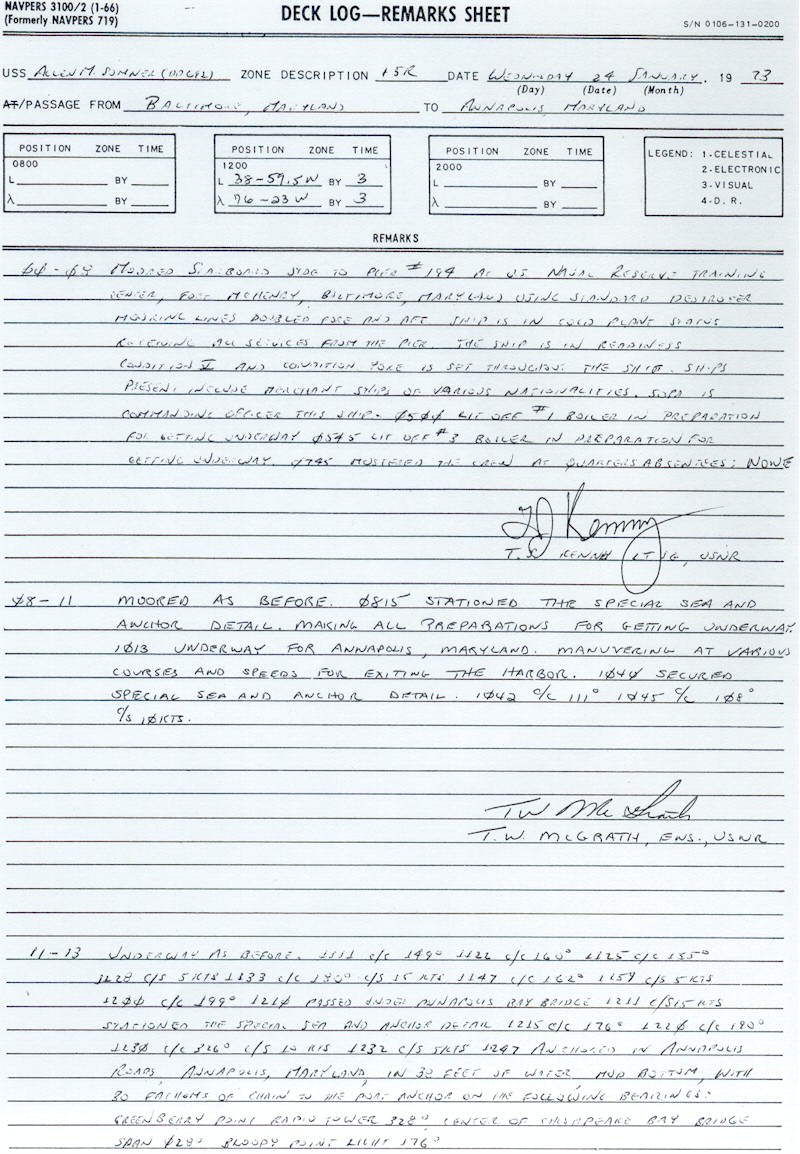 NAVPERS 3100/2 (1-66)
(Formerly NAVPERS 719)
DECK LOG—REMARKS SHEET
S/N 0106-131-0200
USS ALLEN M. SUMNER (DD692) ZONE DESCRIPTION +5R DATE WEDNESDAY 24 JANUARY, 19 73
(Day) (Date) (Month)
AT/PASSAGE FROM BALTIMORE, MARYLAND TO ANNAPOLIS, MARYLAND
POSITION ZONE TIME
0800
L BY
λ BY
POSITION ZONE TIME
1200
L 38-59.5W BY 3
λ 76-23W BY 3
POSITION ZONE TIME
2000
L BY
λ BY
LEGEND: 1-CELESTIAL
2-ELECTRONIC
3-VISUAL
4-D. R.
REMARKS
MOORED STARBOARD SIDE TO PIER #194 AT U.S. NAVAL RESERVE TRAINING
CENTER, FORT MCHENRY, BALTIMORE, MARYLAND USING STANDARD DESTROYER
MOORING LINES DOUBLED FORE AND AFT. SHIP IS IN COLD PLANT STATUS
RECEIVING ALL SERVICES FROM THE PIER. THE SHIP IS IN READINESS
CONDITION V AND CONDITION YOKE IS SET THROUGHOUT THE SHIP. SHIPS
PRESENT INCLUDE MERCHANT SHIPS OF VARIOUS NATIONALITIES. SOPA IS
COMMANDING OFFICER THIS SHIP. 0500 LIT OFF #1 BOILER IN PREPARATION
FOR GETTING UNDERWAY 0545 LIT OFF #3 BOILER IN PREPARATION FOR
GETTING UNDERWAY. 0745 MUSTERED THE CREW AT QUARTERS ABSENTEES: NONE
LTJG, USNR
08-11 MOORED AS BEFORE. 0815 STATIONED THE SPECIAL SEA AND
ANCHOR DETAIL. MAKING ALL PREPARATIONS FOR GETTING UNDERWAY.
1013 UNDERWAY FOR ANNAPOLIS, MARYLAND. MANUVERING AT VARIOUS
COURSES AND SPEEDS FOR EXITING THE HARBOR. 1040 SECURED
SPECIAL SEA AND ANCHOR DETAIL. 1042 C/C 111° 1045 C/C 108°
C/S 10KTS.
T.W. MCGRATH, ENS., USNR
11-13 UNDERWAY AS BEFORE. 1111 C/C 149° 1122 C/C 160° 1125 C/C 155°
1128 C/S 5KTS 1133 C/C 180° C/S 15 KTS 1147 C/C 162° 1154 C/S 5KTS
1200 C/C 199° 1210 PASSED UNDER ANNAPOLIS BAY BRIDGE 1211 C/S 15 KTS
STATIONED THE SPECIAL SEA AND ANCHOR DETAIL 1215 C/C 176° 1220 C/C 190°
1230 C/C 326° C/S 10 KTS 1232 C/S 5KTS 1247 ANCHORED IN ANNAPOLIS
ROADS, ANNAPOLIS, MARYLAND, IN 39 FEET OF WATER, MUD BOTTOM, WITH
30 FATHOMS OF CHAIN TO THE PORT ANCHOR ON THE FOLLOWING BEARINGS:
GREENBERRY POINT RADIO TOWER 328° CENTER OF CHESAPEAKE BAY BRIDGE
SPAN 028° BLOODY POINT LIGHT 176°